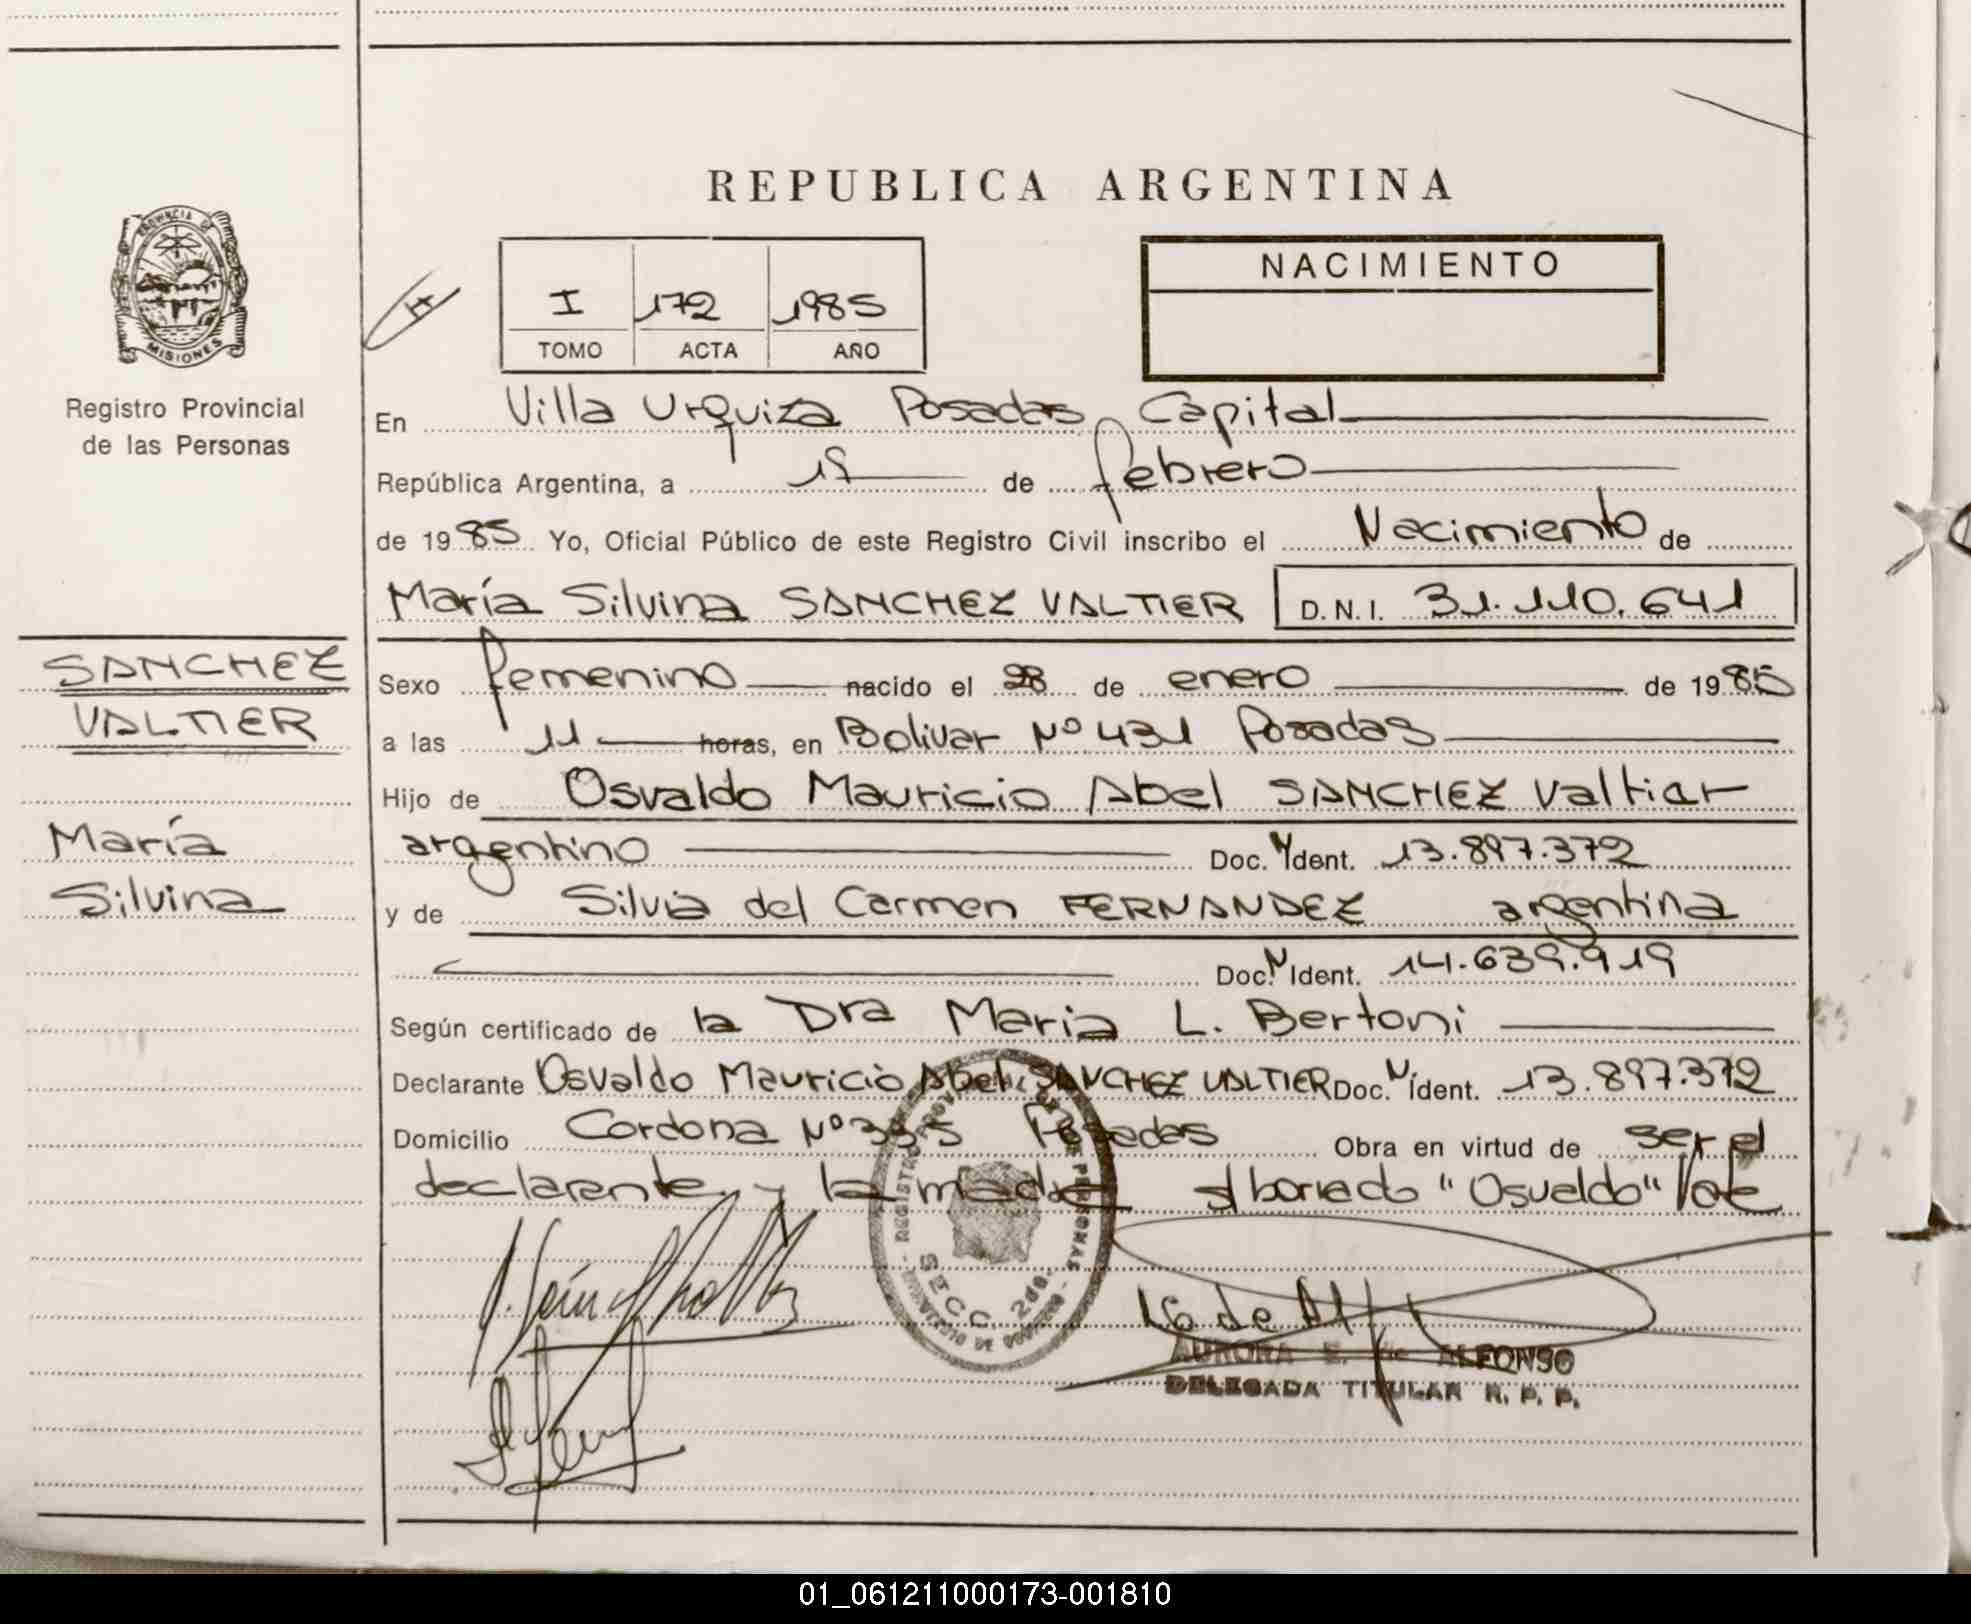 REPUBLICA ARGENTINA
PROVINCIA DE
MISIONES
Registro Provincial
de las Personas
I 172 1985
TOMO ACTA AÑO
NACIMIENTO
En Villa Urquiza Posadas Capital
República Argentina, a de febrero
de 1985 Yo, Oficial Público de este Registro Civil inscribo el Nacimiento de
María Silvina SANCHEZ VALTIER D.N.I. 31.110.641
SANCHEZ
VALTIER
María
Silvina
Sexo femenino nacido el 28 de enero de 1985
a las 11 horas, en Bolivar Nº 431 Posadas
Hijo de Osvaldo Mauricio Abel SANCHEZ Valtiar
argentino Doc. N Ident. 13.897.372
y de Silvia del Carmen FERNANDEZ argentina
Doc. N Ident. 14.639.919
Según certificado de la Dra Maria L. Bertoni
Declarante Osvaldo Mauricio Abel SANCHEZ VALTIER Doc. N Ident. 13.897.372
Domicilio Cordona Nº Posadas Obra en virtud de ser el
declarante y la madre s/borrado "Osvaldo" Vale
SECC. 2da.
AURORA E. de ALFONSO
DELEGADA TITULAR R. P. P.
01_061211000173-001810